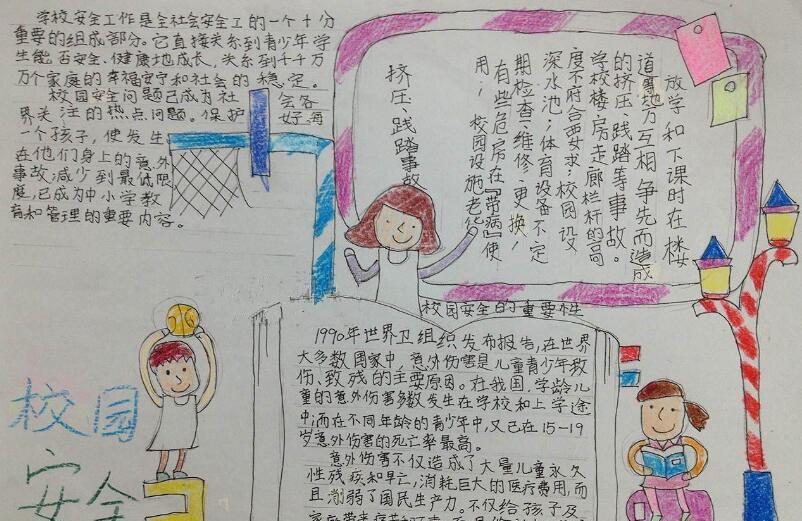 学校安全工作是全社会安全工的一个十分
重要的组成部分。它直接关系到青少年学
生能否安全、健康地成长,关系到千千万
万个家庭的幸福安宁和社会的稳定。
校园安全问题已成为社会各
界关注的热点问题。保护好每
一个孩子,使发生
在他们身上的意外
事故减少到最低限
度,已成为中小学教
育和管理的重要内容。
放学和下课时在楼
道等地方互相争先而造成
的挤压、践踏等事故。
学校楼房走廊栏杆的高
度不符合要求;校园设
深水池;体育设备不定
期检查、维修、更换;
有些危房在『带病』使
用;校园设施老化
挤压、践踏事故
校园安全的重要性
1990年世界卫组织发布报告,在世界
大多数国家中,意外伤害是儿童青少年致
伤、致残的主要原因。在我国,学龄儿
童的意外伤害多数发生在学校和上学途
中;而在不同年龄的青少年中,又已在15-19
岁意外伤害的死亡率最高。
意外伤害不仅造成了大量儿童永久
性残疾和早亡,消耗巨大的医疗费用,而
且削弱了国民生产力。不仅给孩子及
校园
安全